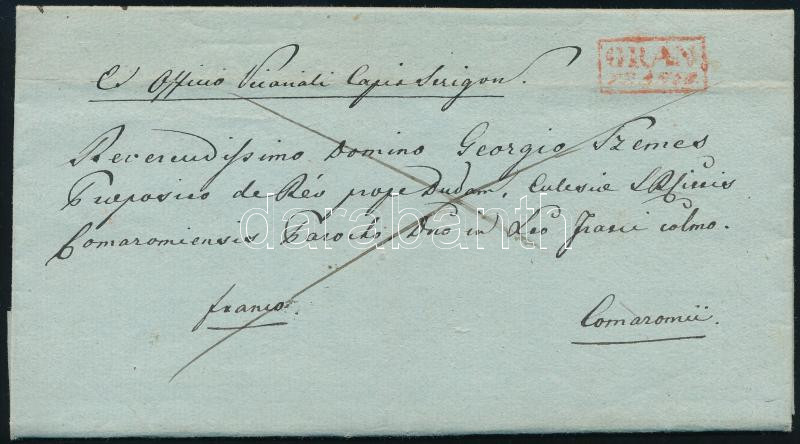 GRAN.
FRANCO.
Ex Officio Vicariali Capit Strigon.
Reverendissimo Domino Georgio Szemes
Praeposito de Rév prope Dudam, Eclesiae
Comaromiensis Parocho, Dno in Xto Fratri colmo.
franco.
Comaromii.
darabanth